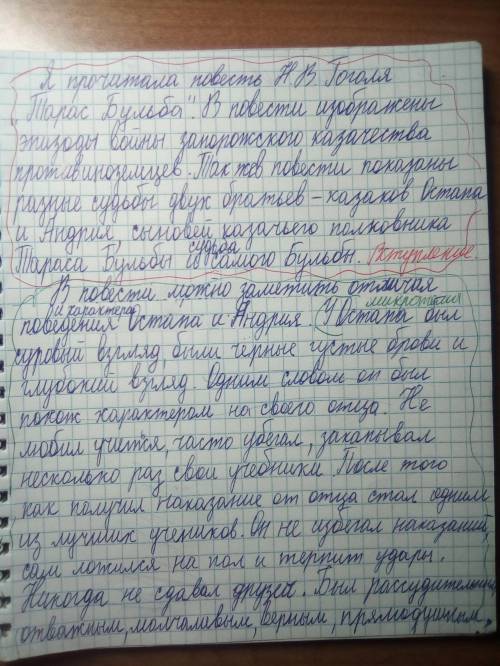 Я прочитала повесть Н.В. Гоголя
"Тарас Бульба". В повести изображены
эпизоды войны запорожского казачества
противиноземцев. Также в повести показаны
разные судьбы двух братьев – казаков Остапа
и Андрия, сыновей казачьего полковника
судьба
Тараса Бульбы и самого Бульбы. Вступление.
В повести можно заметить отличия
и характера микротемия
поведения Остапа и Андрия. У Остапа был
суровый взгляд, были чёрные густые брови и
глубокий взгляд. Одним словом он был
похож характером на своего отца. Не
любил учится, часто убегал, закапывал
несколько раз свои учебники. После того
как получил наказание от отца стал одним
из лучших учеников. Он не избегал наказаний,
сам ложился на пол и терпит удары.
Никогда не сдавал друзей. Был рассудительным,
отважным, молчаливым, верным, прямодушным.